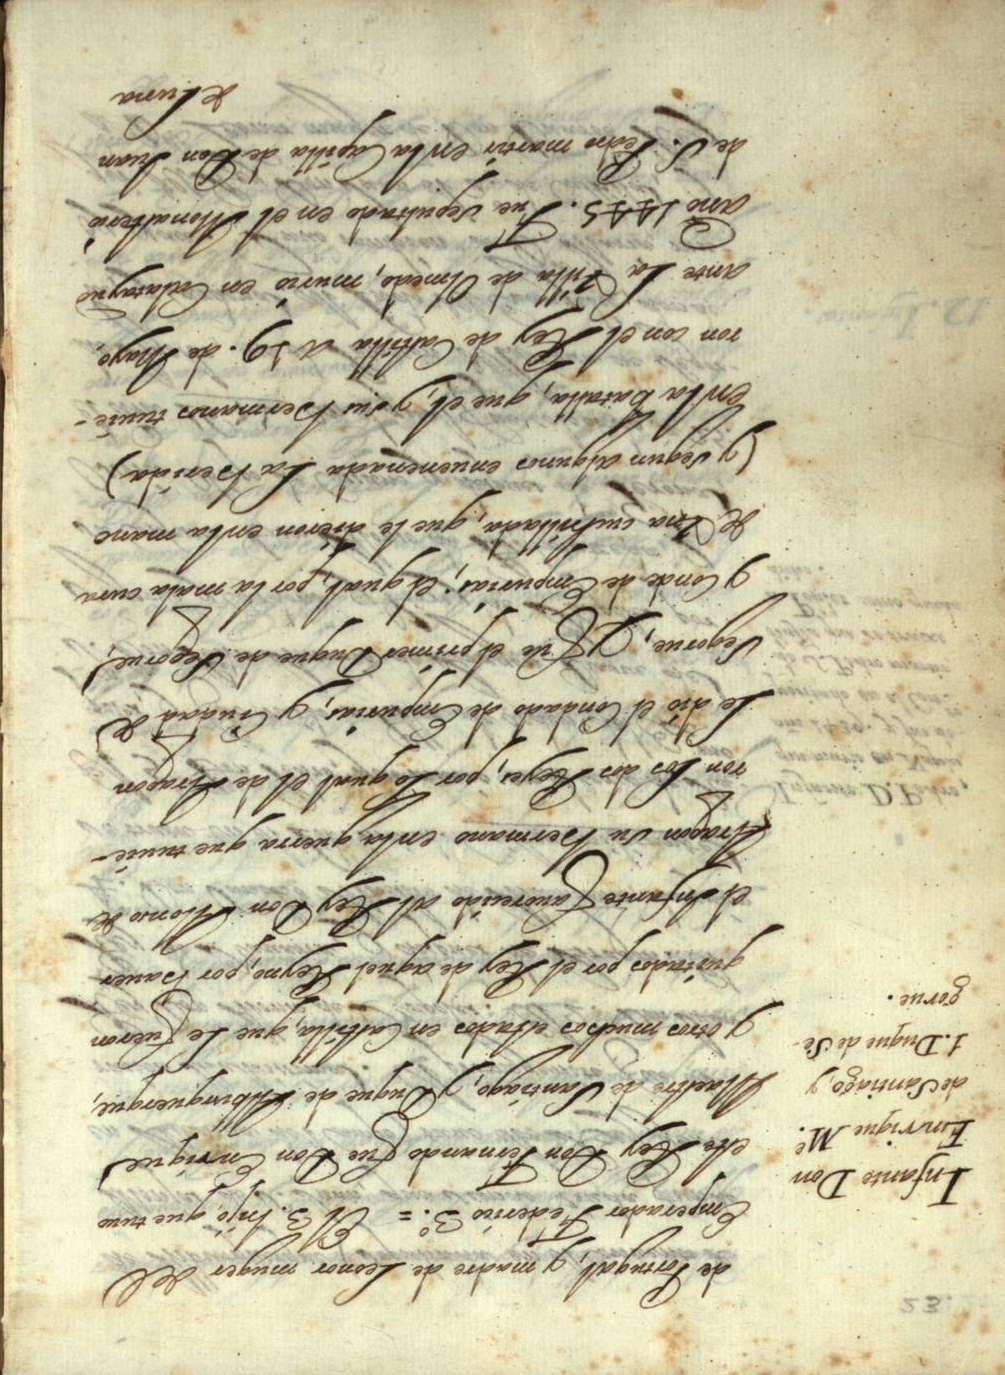 de Portugal, y madre de Leonor muger del
Emperador Federico 3.º = El 3. hijo, que tuvo
este Rey Don Fernando fue Don Enrique
Maestre de Santiago, y Duque de Alburquerque,
y otros muchos estados en Castilla, que le fueron
quitados por el Rey de aquel Reyno, por haver
el Infante favorecido al Rey Don Alonso de
Aragon su hermano en la guerra que tuvie-
ron los dos Reyes, por lo qual el de Aragon
le dió el Condado de Empurias, y Ciudad de
Segorve, y fue el primer Duque de Segorve,
y Conde de Empurias; el qual, por la mala cura
de una cuchillada, que le dieron en la mano
(y segun algunos envenenada la herida)
en la batalla, que el, y sus hermanos tuvie-
ron con el Rey de Castilla à 19. de Mayo,
ante la Villa de Olmedo, murió en Calatayud
año 1445. Fue sepultado en el Monasterio
de S. Pedro martir en la Capilla de Don Juan
de Luna
Infante Don
Enrrique M.e
de Santiago y
1. Duque de Se-
gorve.
23.